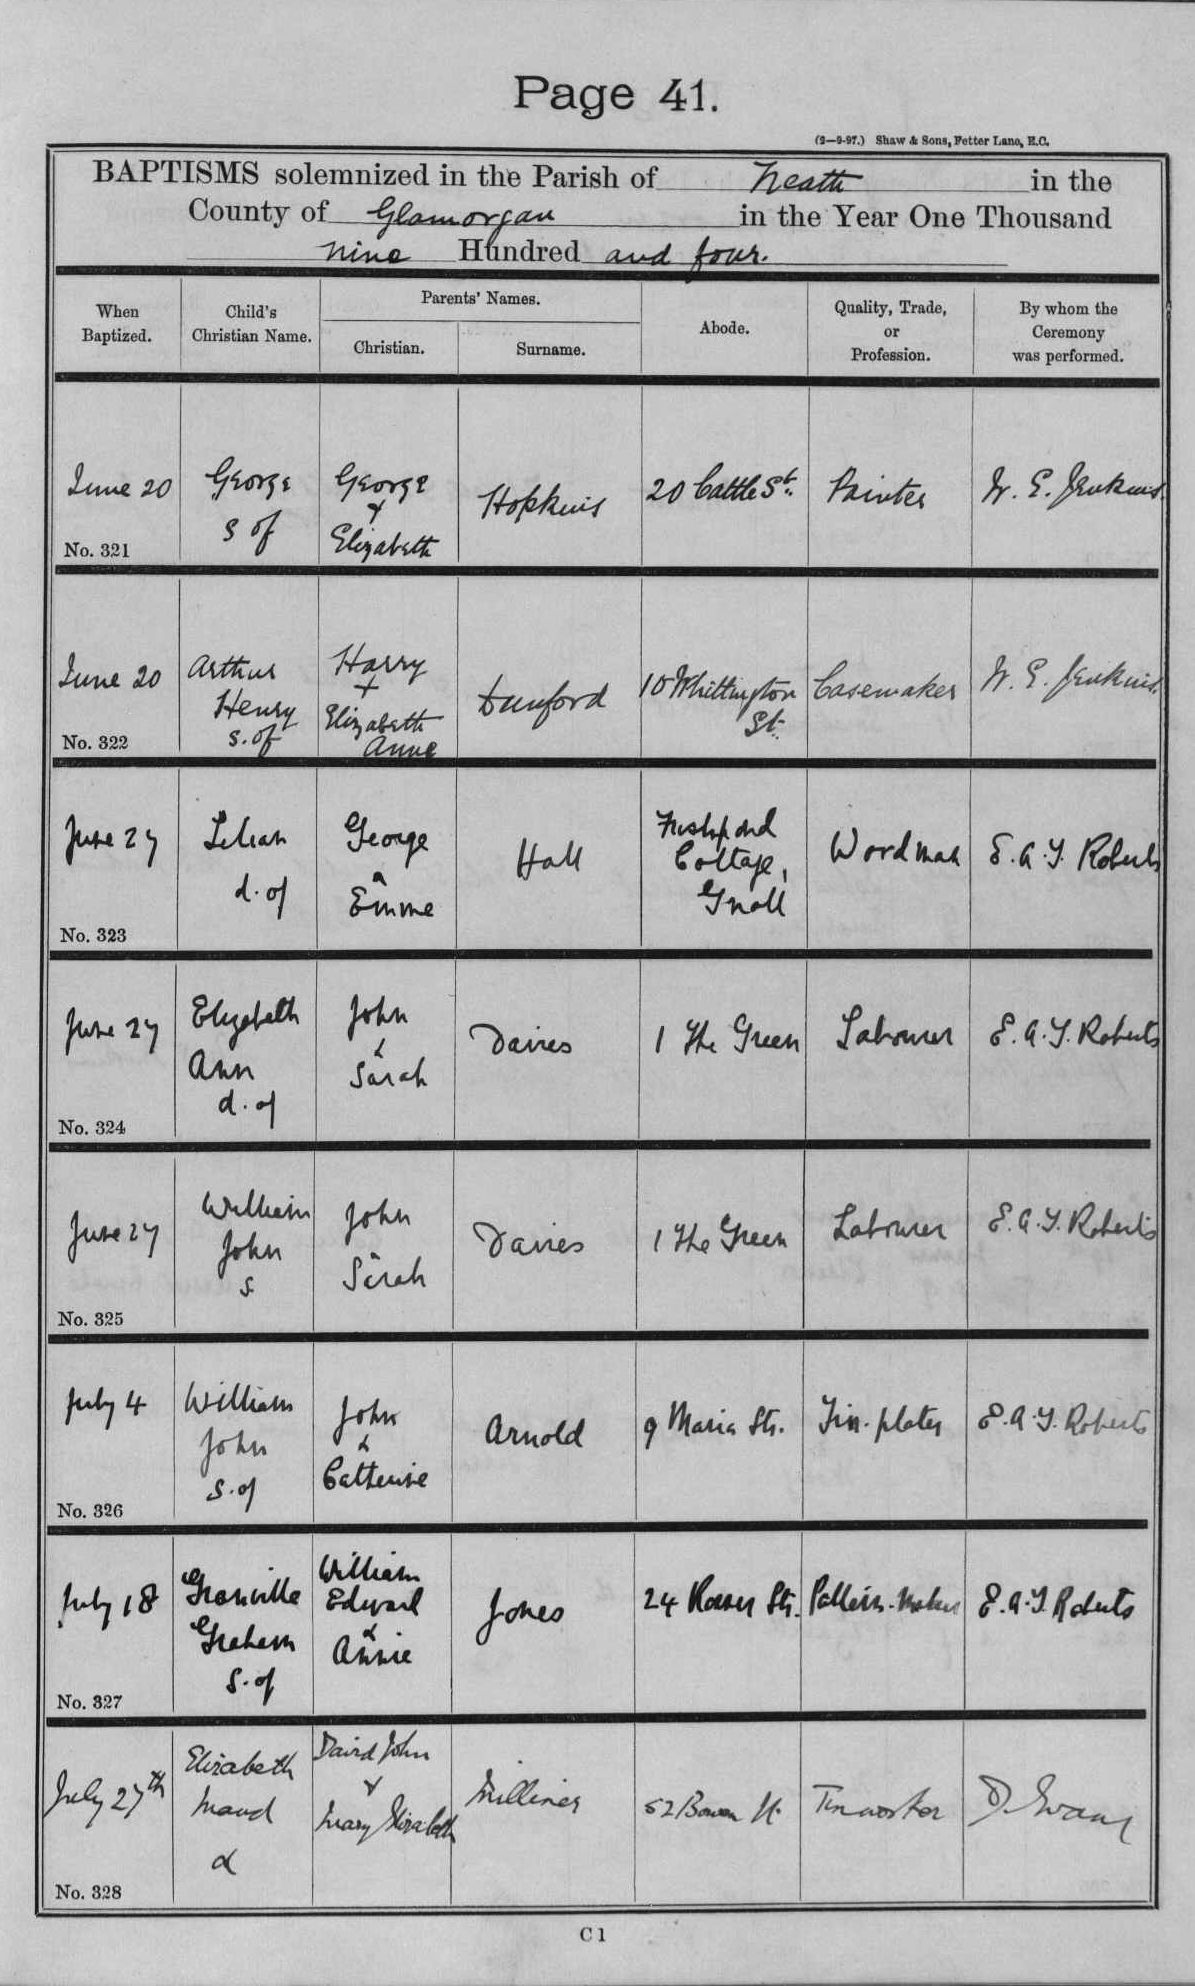 Page 41.
(2—9-97.) Shaw & Sons, Fetter Lane, E.C.
BAPTISMS solemnized in the Parish of Neath in the
County of Glamorgan in the Year One Thousand
nine Hundred and four.
When Baptized.
Child's Christian Name.
Parents' Names.
Christian.
Surname.
Abode.
Quality, Trade, or Profession.
By whom the Ceremony was performed.
June 20
No. 321
George
s of
George
+
Elizabeth
Hopkins
20 Cattle St.
Painter
W. E. Jenkins
June 20
No. 322
Arthur
Henry
s. of
Harry
+
Elizabeth
Anne
Dunford
10 Whittington
St.
Casemaker
W. E. Jenkins
June 27
No. 323
Lilian
d. of
George
&
Emme
Hall
Cottage,
Gnoll
Wordman
E. A. T. Roberts
June 27
No. 324
Elizabeth
Ann
d. of
John
&
Sarah
Davies
1 The Green
Labourer
E. A. T. Roberts
June 27
No. 325
William
John
s.
John
&
Sarah
Davies
1 The Green
Labourer
E. A. T. Roberts
July 4
No. 326
William
John
s. of
John
&
Catherine
Arnold
9 Maria Str.
Tin-plater
E. A. T. Roberts
July 18
No. 327
Granville
Graham
s. of
William
Edward
&
Annie
Jones
24 Rosser Str.
Pattern-maker
E. A. T. Roberts
July 27th
No. 328
Elizabeth
Maud
d
David John
+
Mary Elizabeth
Milliner
52 Bowen St.
Tinworker
D. Evans
C 1